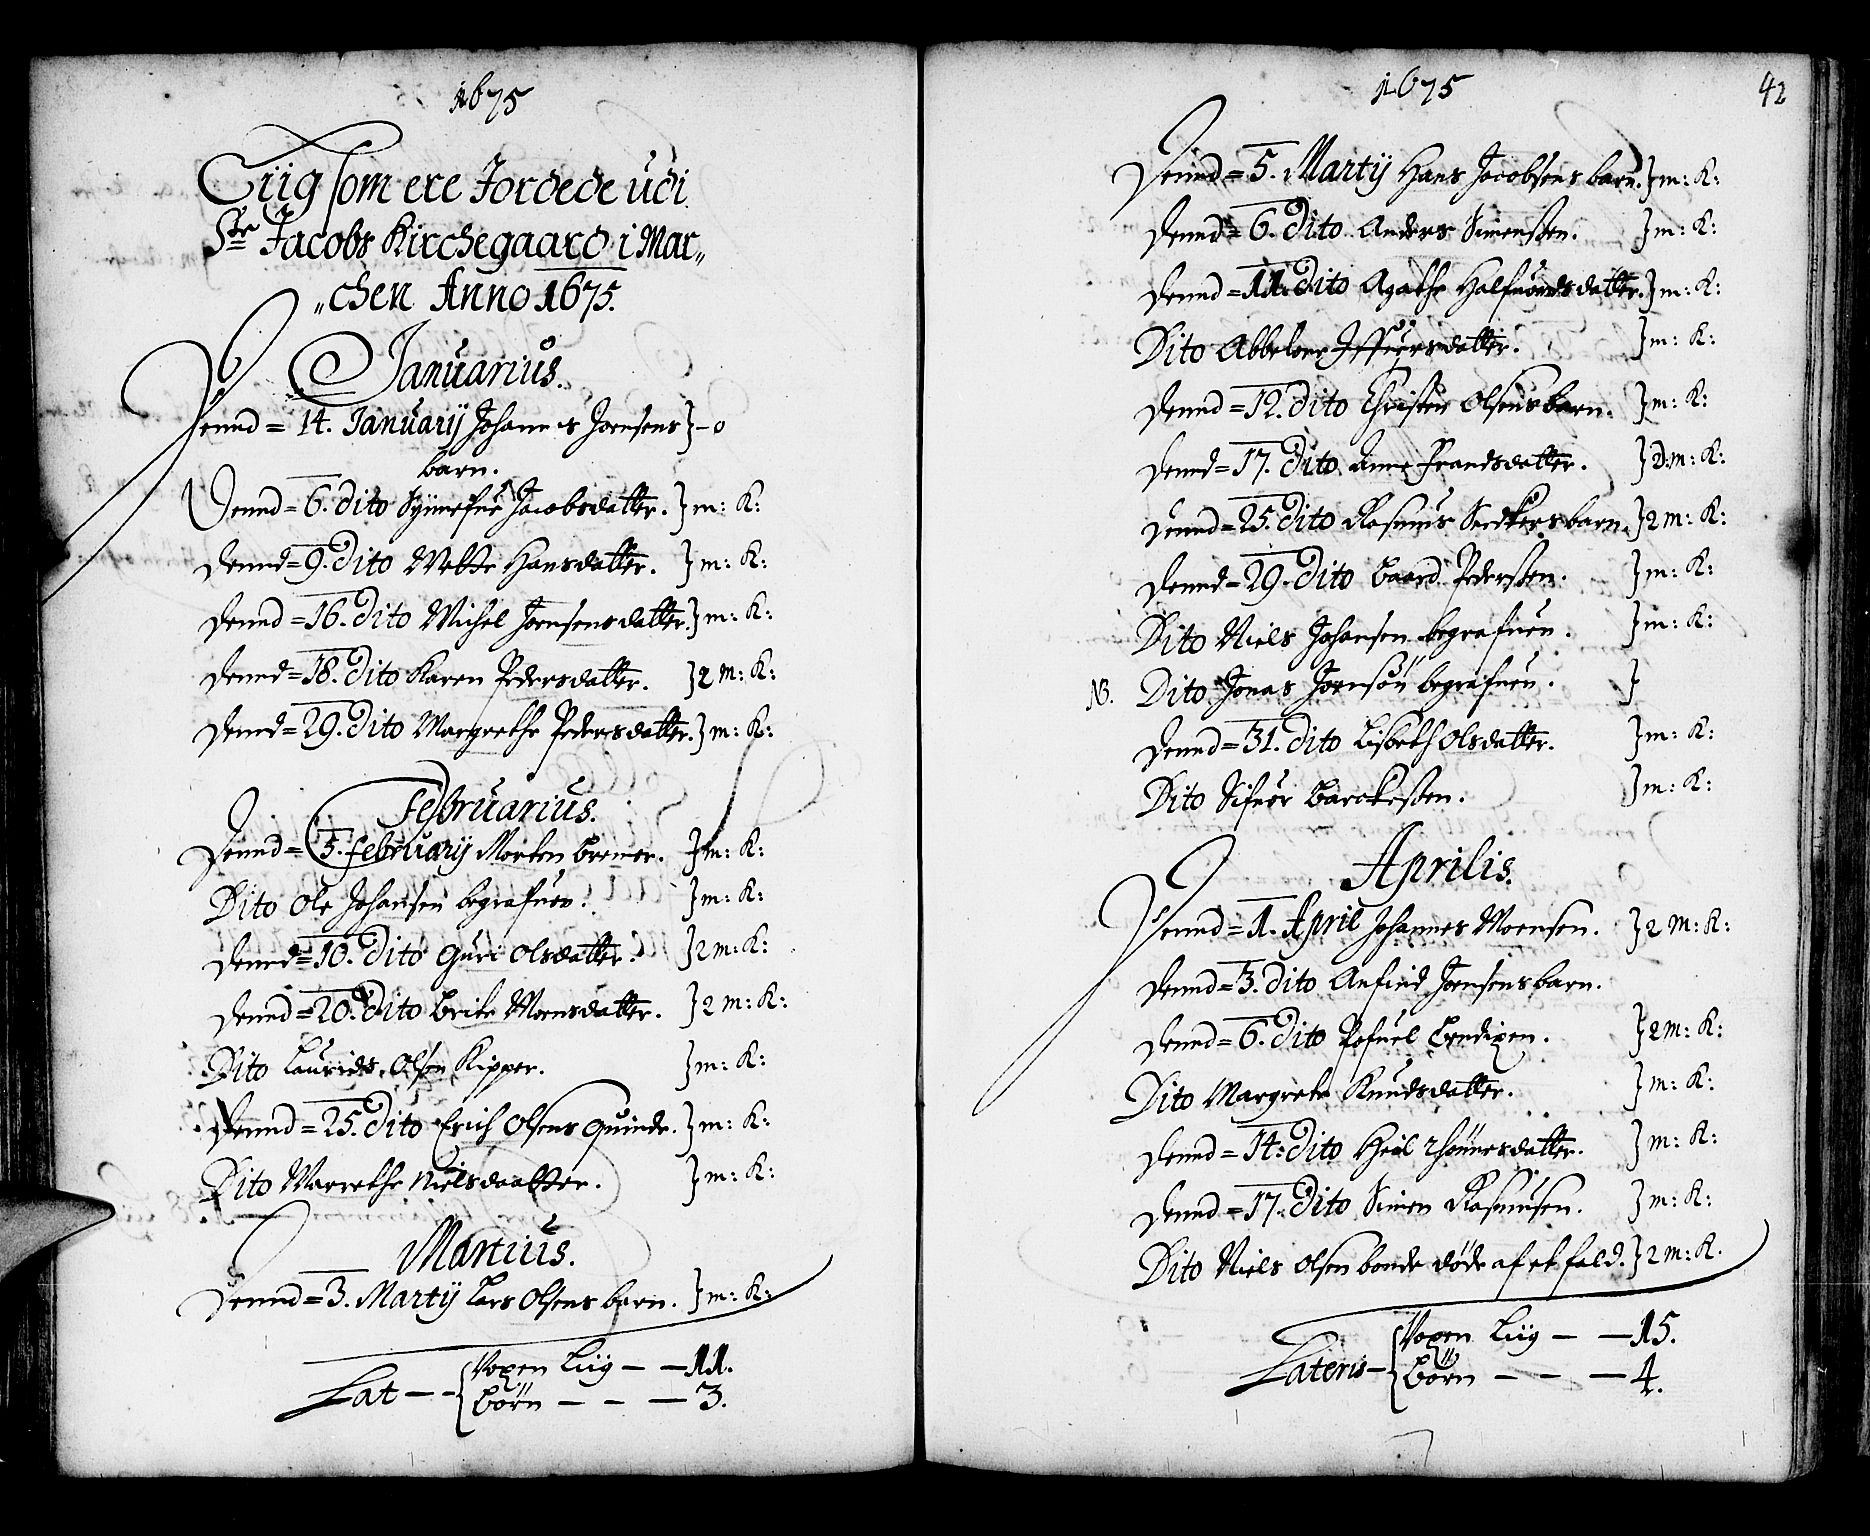 1675
Liig som ere Jordede udi
Ste Jacobs Kirchegaard i Mar„
„chen Anno 1675.
Januarius.
Dennd = 14. Januarij Johannes Joensens } – 0
barn.
Dennd = 6. dito Synnefue Jacobsdatter. } m: K:
Dennd = 9. dito Mette Hansdatter. } m: K:
Dennd = 16. dito Michel Joensens datter. } m: K:
Dennd = 18. dito Karen Pedersdatter. } 2 m: K:
Dennd = 29. dito Margrethe Pedersdatter. } m: K:
Februarius.
Dennd = 5. Februarij Morten Bremer. } m: K:
Dito Ole Johansen begrafuen. } m: K:
Dennd = 10. dito Guri Olsdatter. } 2 m: K:
Dennd = 20. dito Brite Monsdatter. } 2 m: K:
Dito Laurids Olsen Kipper. } m: K:
Dennd = 25. dito Erich Olsens quinde. } m: K:
Dito Marrethe Nielsdaatter. } m: K:
Martius.
Dennd = 3. Martij Lars Olsens barn. } m: K:
Lat – – { Voxen Liig – – 11.
Börn – – – 3.
1675
42
Dennd = 5. Martij Hans Jacobsens barn. } m: K:
Dennd = 6. dito Anders Simensen. } m: K:
Dennd = 11. dito Agathe Halfuordsdatter. } m: K:
Dito Abbelone Iffuersdatter. } m: K:
Dennd = 12. dito Christen Olsens barn. } m: K:
Dennd = 17. dito Anne Frandsdatter. } D: m: K:
Dennd = 25. dito Rasmus barn. } 2 m: K:
Dennd = 29. dito Baard Pedersen. } m: K:
Dito Niels Johansen begrafuen. } m: K:
NB. Dito Jonas Joensön begrafuen. }
Dennd = 31. dito Lisbeth Olsdatter. } m: K:
Dito Sifuer } m: K:
Aprilis.
Dennd = 1. April Johannes Monsen. } 2 m: K:
Dennd = 3. dito Anfind Joensens barn.
Dennd = 6. dito Pofuel Bendixen. } 2 m: K:
Dito Margrete Knudsdatter. } m: K:
Dennd = 14. dito datter. } m: K:
Dennd = 17. dito Simen Rasmusen. } m: K:
Dito Niels Olsen bonde döde af et fald. } 2 m: K.
Lateris – { Voxen Liig – – 15.
Börn – – – 4.